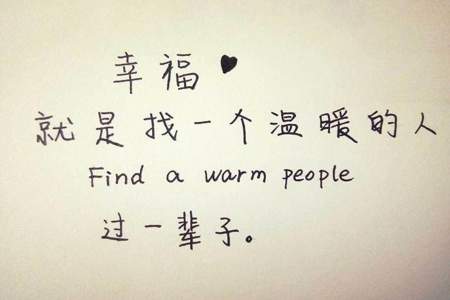 幸福♥
就是找一个温暖的人
Find a warm people
过一辈子。